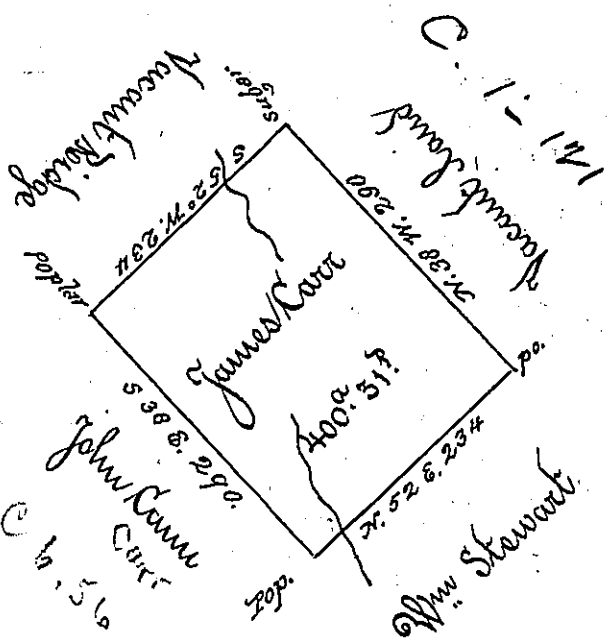 C. 1-141
Vacant Land
Vacant Ridge
sugar
S 52° W. 234
N. 38 W. 290
poplar
James Carr
400ᵃ. 31ᵖ
po.
S 38 E. 290.
N. 52 E. 234
John Cann
Carr
C 6, 56
Pop.
Wm. Stewart